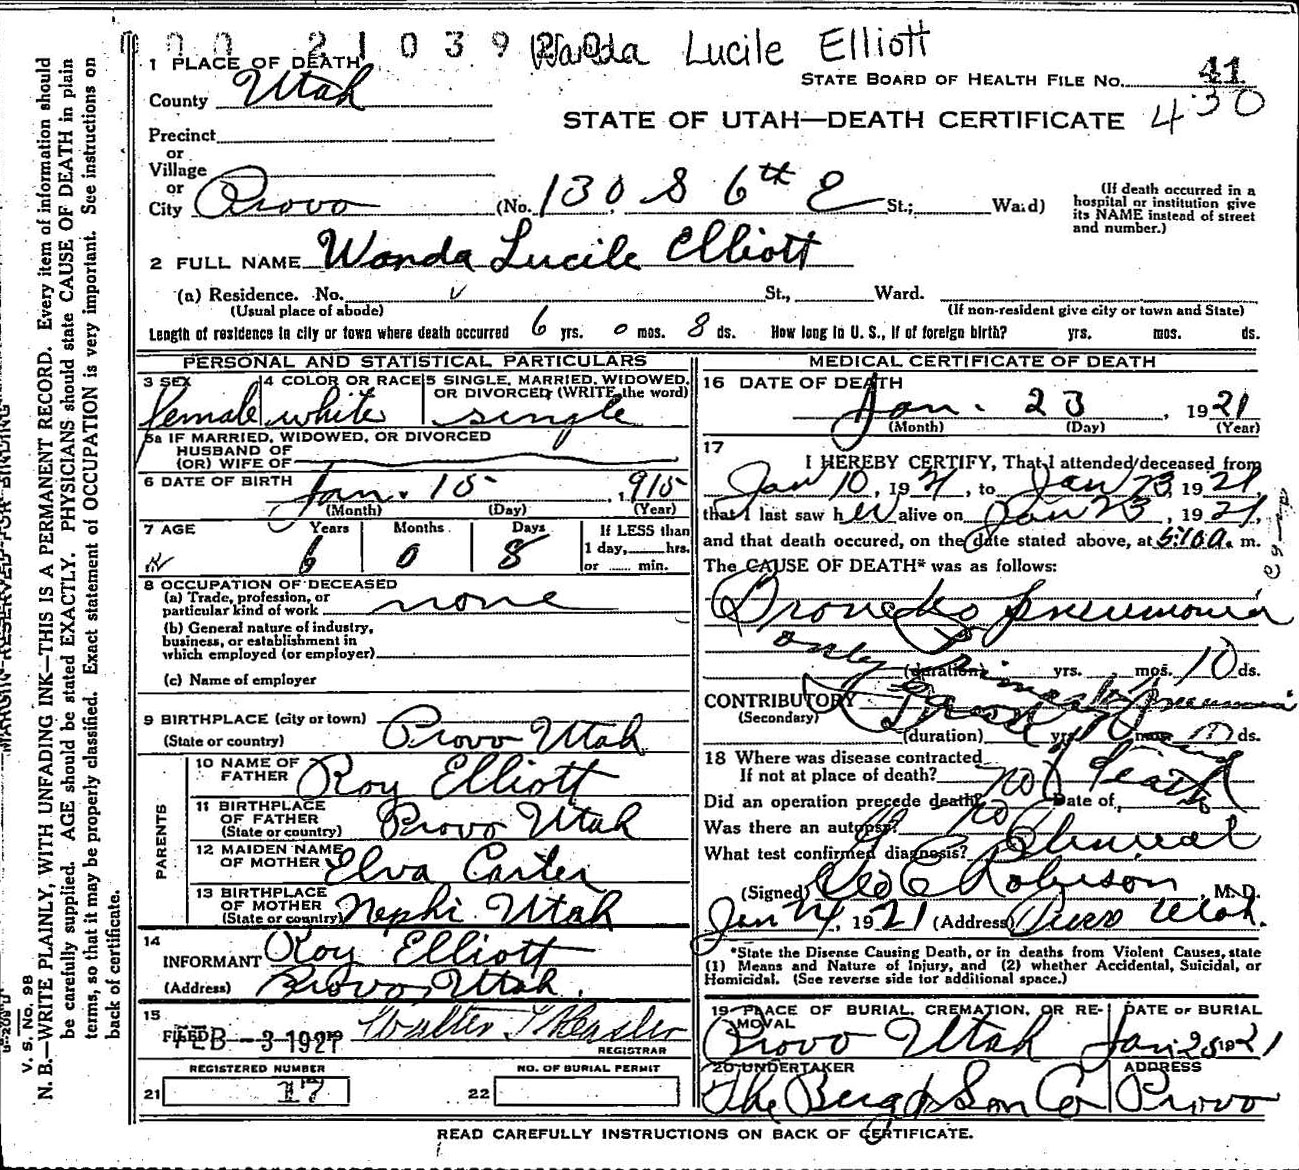 21039 Wanda Lucile Elliott
1 PLACE OF DEATH
STATE BOARD OF HEALTH FILE No. 41
County Utah
430
STATE OF UTAH—DEATH CERTIFICATE
Precinct
or
Village
or
City Provo (No. 130 S 6th E St.; Ward)
(If death occurred in a hospital or institution give its NAME instead of street and number.)
2 FULL NAME Wanda Lucile Elliott
(a) Residence. No. St., Ward.
(Usual place of abode) (If non-resident give city or town and State)
Length of residence in city or town where death occurred 6 yrs. 0 mos. 8 ds. How long in U. S., if of foreign birth? yrs. mos. ds.
PERSONAL AND STATISTICAL PARTICULARS
3 SEX 4 COLOR OR RACE 5 SINGLE, MARRIED, WIDOWED, OR DIVORCED (WRITE the word)
female white single
5a IF MARRIED, WIDOWED, OR DIVORCED
HUSBAND OF
(OR) WIFE OF
6 DATE OF BIRTH Jan. 15, 1915
(Month) (Day) (Year)
7 AGE Years Months Days If LESS than
6 0 8 1 day, hrs.
or min.
8 OCCUPATION OF DECEASED
(a) Trade, profession, or
particular kind of work none
(b) General nature of industry,
business, or establishment in
which employed (or employer)
(c) Name of employer
9 BIRTHPLACE (city or town) Provo Utah
(State or country)
PARENTS
10 NAME OF FATHER Roy Elliott
11 BIRTHPLACE OF FATHER (State or country) Provo Utah
12 MAIDEN NAME OF MOTHER Elva Carter
13 BIRTHPLACE OF MOTHER (State or country) Nephi Utah
14
INFORMANT Roy Elliott
(Address) Provo, Utah.
15
FILED FEB -3 1921 Walter T
REGISTRAR
REGISTERED NUMBER NO. OF BURIAL PERMIT
21 17 22
MEDICAL CERTIFICATE OF DEATH
16 DATE OF DEATH
Jan. 23, 1921
(Month) (Day) (Year)
17
I HEREBY CERTIFY, That I attended deceased from
Jan 10, 1921, to Jan 23, 1921,
that I last saw her alive on Jan 23, 1921,
and that death occured, on the date stated above, at 5:10 a. m.
The CAUSE OF DEATH* was as follows:
Broncho pneumonia
only
(duration) yrs. mos. 10 ds.
CONTRIBUTORY pneumonia
(Secondary)
(duration) yrs. mos. 10 ds.
18 Where was disease contracted
If not at place of death?
Did an operation precede death? no Date of
Was there an autopsy? no
What test confirmed diagnosis? Clinical
(Signed) Geo E Robison, M. D.
Jan 24, 1921 (Address) Provo Utah.
*State the Disease Causing Death, or in deaths from Violent Causes, state
(1) Means and Nature of Injury, and (2) whether Accidental, Suicidal, or
Homicidal. (See reverse side for additional space.)
19 PLACE OF BURIAL, CREMATION, OR REMOVAL DATE OF BURIAL
Provo Utah Jan 25 1921
20 UNDERTAKER ADDRESS
The Berg & Son Co Provo
READ CAREFULLY INSTRUCTIONS ON BACK OF CERTIFICATE.
MARGIN RESERVED FOR BINDING
V. S. No. 98
N. B.—WRITE PLAINLY, WITH UNFADING INK—THIS IS A PERMANENT RECORD. Every item of information should
be carefully supplied. AGE should be stated EXACTLY. PHYSICIANS should state CAUSE OF DEATH in plain
terms, so that it may be properly classified. Exact statement of OCCUPATION is very important. See instructions on
back of certificate.